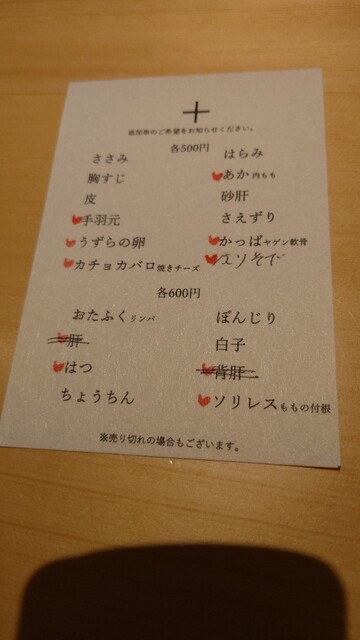 ＋
追加串のご希望をお知らせください。
各500円
ささみ
はらみ
胸すじ
あか 内もも
皮
砂肝
手羽元
さえずり
うずらの卵
かっぱ ヤゲン軟骨
カチョカバロ 焼きチーズ
各600円
おたふく リンパ
ぼんじり
肝
白子
はつ
背肝
ちょうちん
ソリレス ももの付根
※売り切れの場合もございます。